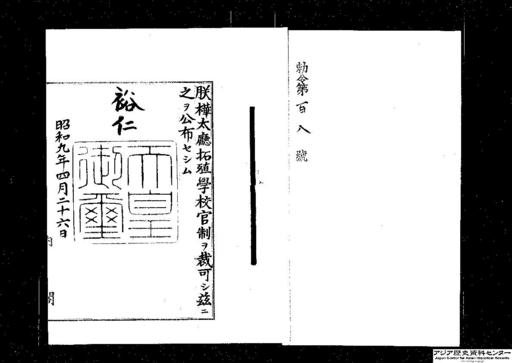 勅令第百八號
朕樺太廳拓殖學校官制ヲ裁可シ茲ニ
之ヲ公布セシム
裕仁
天皇御璽
昭和九年四月二十六日
内閣
アジア歴史資料センター
Japan Center for Asian Historical Records